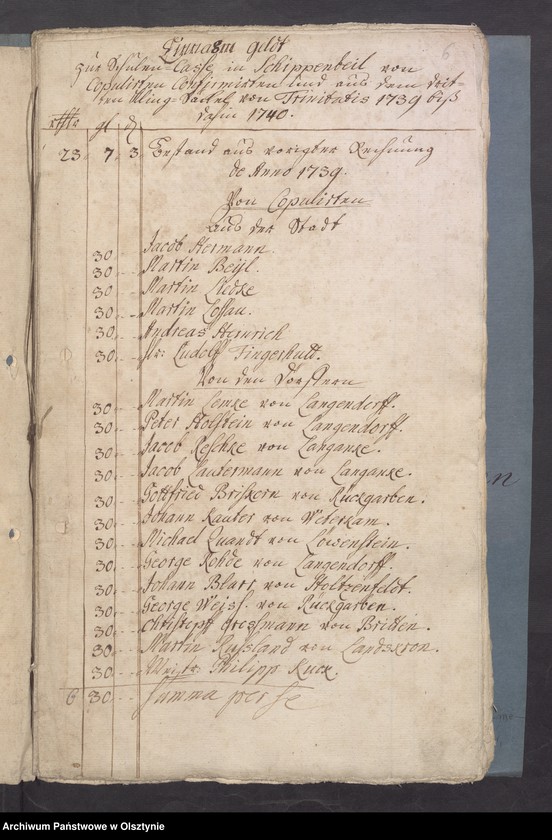 6
Einnahm geldt
zur Schulen-Casse in Schippenbeil von
Copulirten Confirmirten und aus dem dritten
Kling-Säckel von Trinitatis 1739 biß
dahin 1740.
rthlr gl. d.
23 7. 3 Bestand aus voriger Rechnung
de Anno 1739.
Von Copulirten
aus der Stadt
30. Jacob Hermann
30. Martin Beijl.
30. Martin Liedke
30. Martin Lossau.
30. Andreas Heinrich
30. Hr: Ludolf Fingerhutt.
Von den Dörffern
30. Martin Lemke von Langendorff.
30. Peter Holstein von Langendorff.
30. Jacob Reschke von Langanke.
30. Jacob Lautermann von Langanke.
30. Gottfried Briskorn von Rückgarben.
30. Johann Kauter von Weterkam.
30. Michael Quandt von Löwenstein.
30. George Rohde von Langendorff.
30. Johann Blarr von Holtzenfeldt.
30. George Weiss. von Rückgarben.
30. Christoph Grossmann von Britten.
30. Martin Russland von Landskron.
30. Meistr Philipp Kuck.
6 30. Summa per se
n
Archiwum Państwowe w Olsztynie